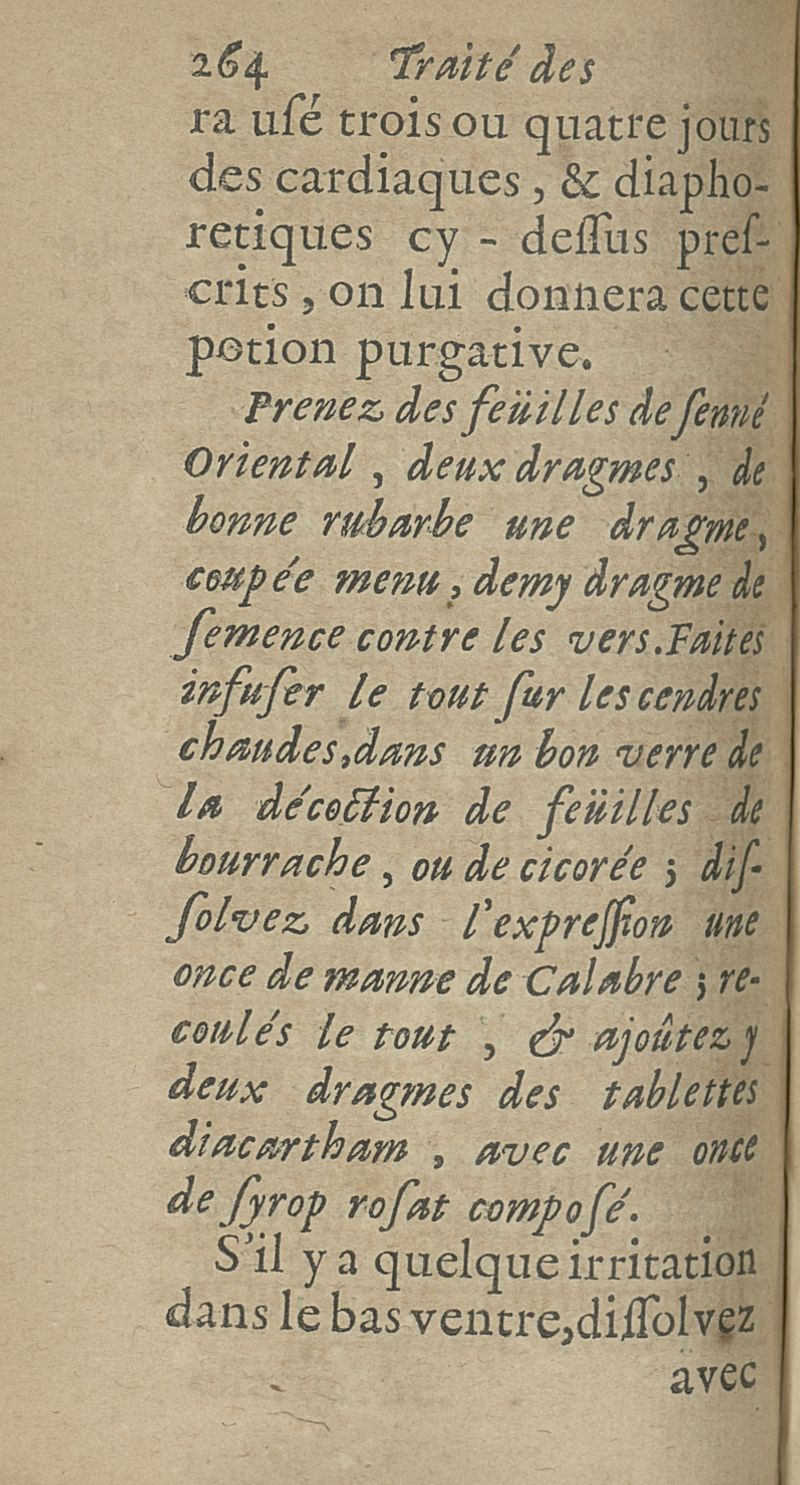 264 Traité des
ra uſé trois ou quatre jours
des cardiaques, & diapho-
retiques cy - deſſus preſ-
crits, on lui donnera cette
potion purgative.
Prenez des feüilles de ſenné
Oriental, deux dragmes, de
bonne rubarbe une dragme,
coupée menu, demy dragme de
ſemence contre les vers. Faites
infuſer le tout ſur les cendres
chaudes, dans un bon verre de
la décoction de feüilles de
bourrache, ou de cicorée ; diſ-
ſolvez dans l'expreſſion une
once de manne de Calabre ; re-
coulés le tout, & ajoûtez y
deux dragmes des tablettes
diacartham, avec une once
de ſyrop roſat compoſé.
S'il y a quelque irritation
dans le bas ventre, diſſolvez
avec